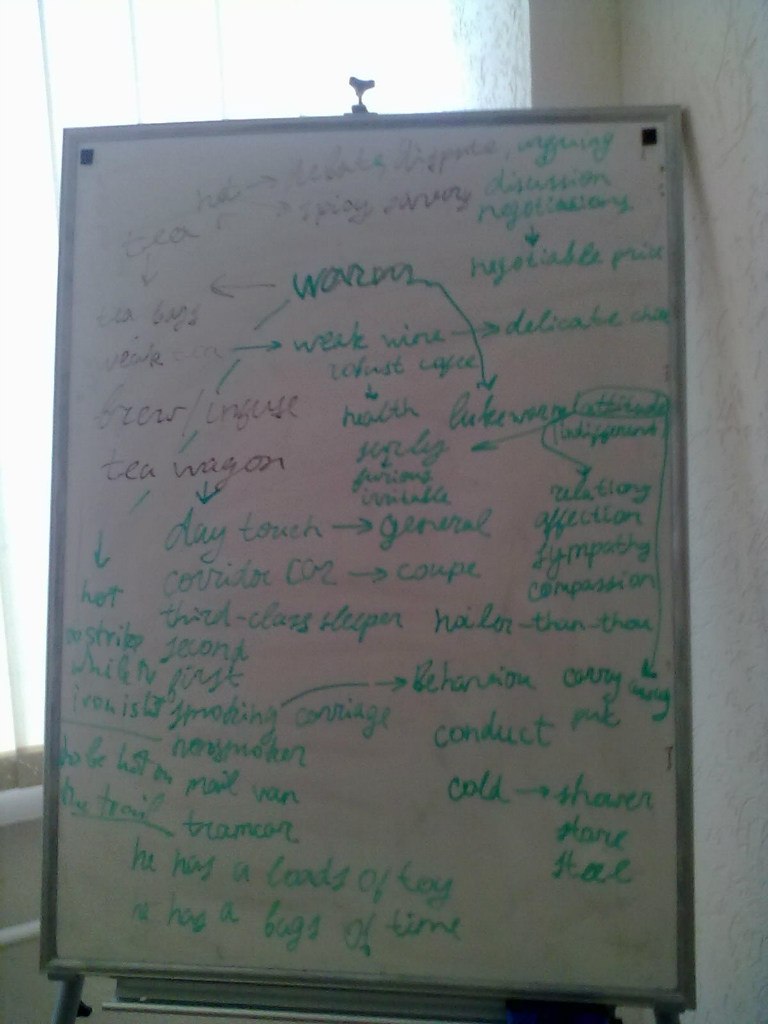 hot → debate, dispute, arguing
→ spicy savory discussion
tea negotiations
negotiable price
warm
tea bags
weak tea → weak wine → delicate
robust
brew/infuse health lukewarm attitude
surly indifferent
tea wagon furious
irritable relations
day touch → general affection
corridor car → coupe sympathy
compassion
hot third-class sleeper holier-than-thou
to strike second
while first → Behaviour carry away
iron is smoking carriage put
nonsmoker conduct
to be hot on mail van cold → shower
the trail tramcar stare
he has a loads of toy
he has a bags of time